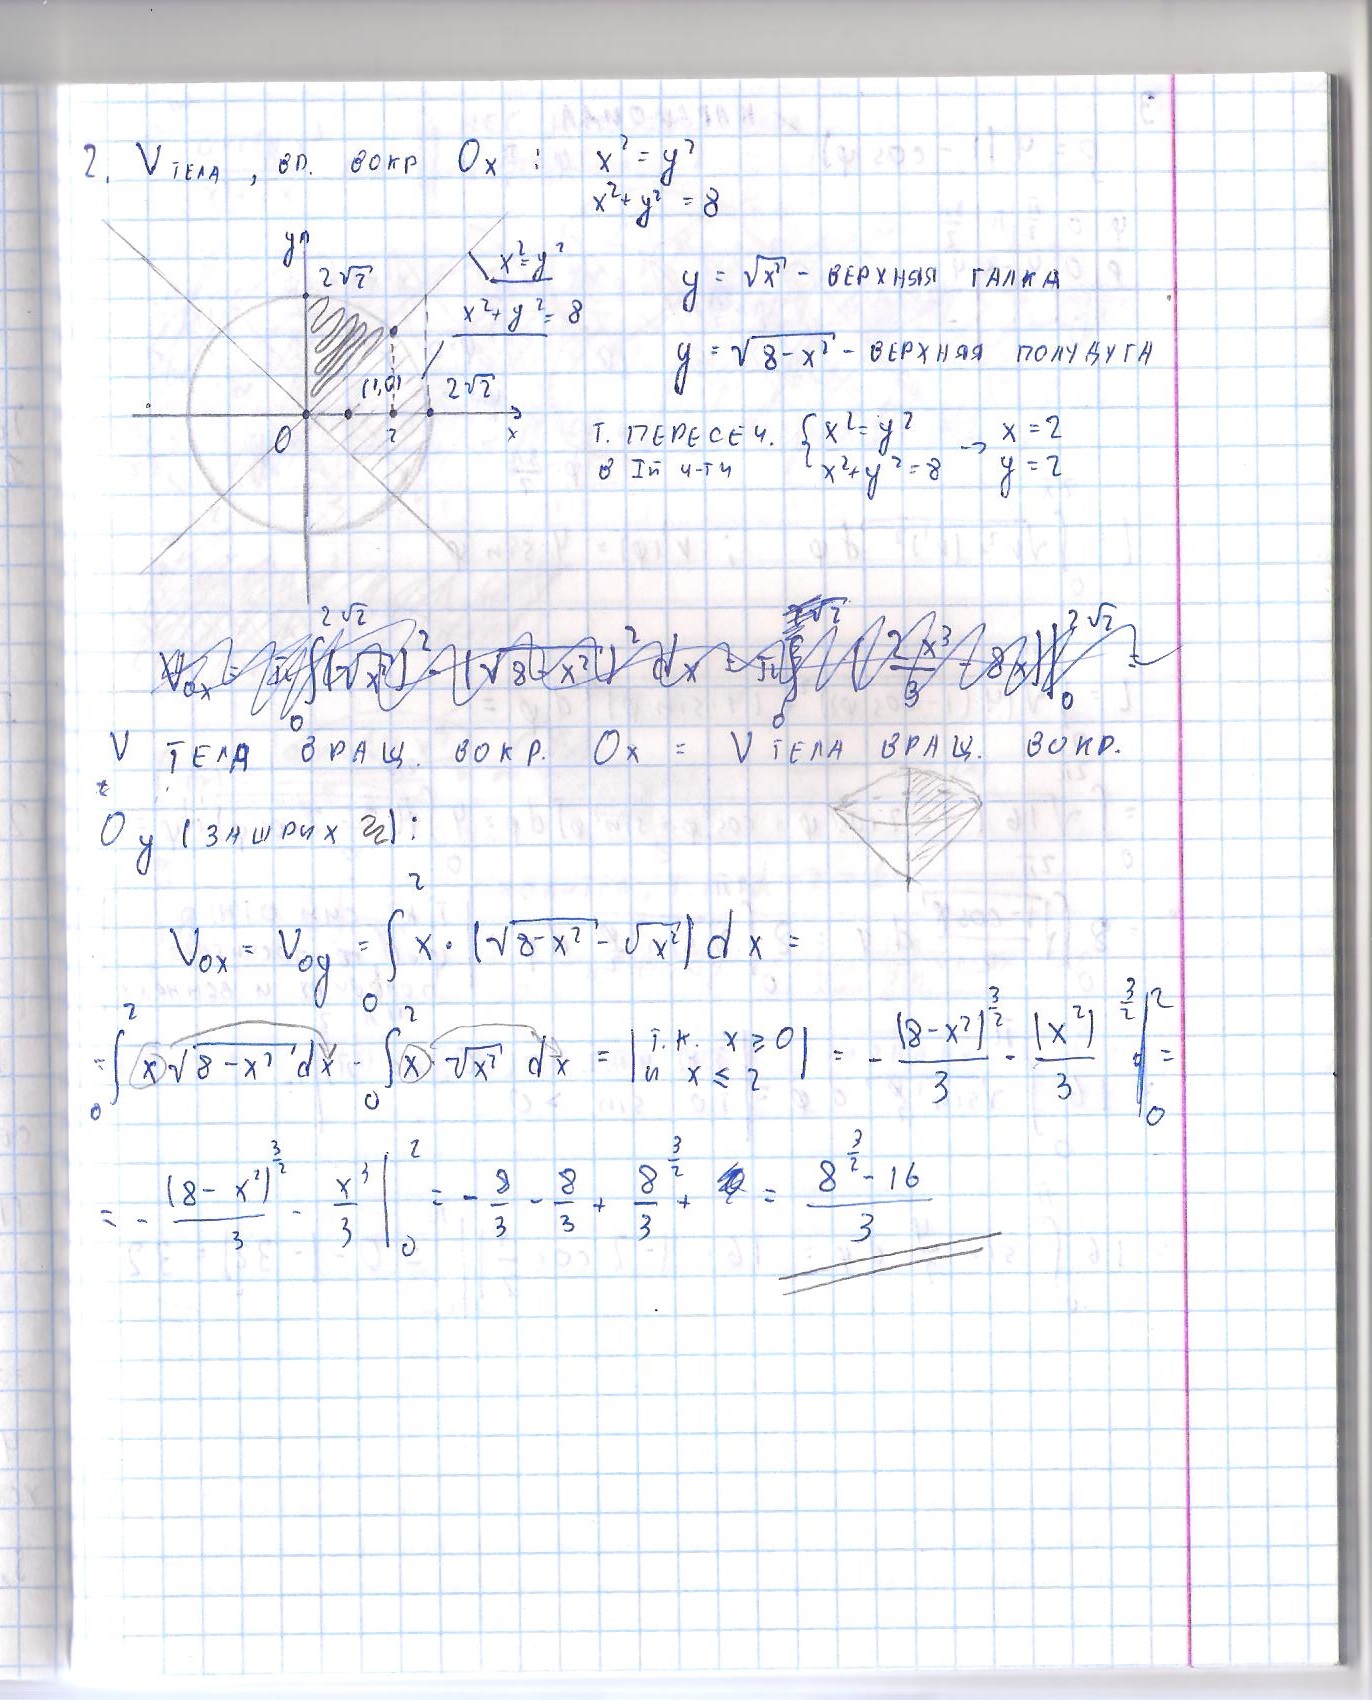 2. V ТЕЛА, ВП. ВОКР Ox : x² = y²
x² + y² = 8
y
2√2
x² = y²
x² + y² = 8
(1,0)
2√2
0
2
x
y = √x² - ВЕРХНЯЯ ГАЛКА
y = √8-x² - ВЕРХНЯЯ ПОЛУДУГА
Т. ПЕРЕСЕЧ. { x² = y² → x = 2
В Iй Ч-ТИ x² + y² = 8 y = 2
V ТЕЛА ВРАЩ. ВОКР. Ox = V ТЕЛА ВРАЩ. ВОКР.
Oy (ЗАШТРИХ):
Vox = Voy = ∫₀² x · (√8-x² - √x²) dx =
= ∫₀² x √8-x² dx - ∫₀² x √x² dx = | Т.К. x ≥ 0 И x ≤ 2 | = - (8-x²)^(3/2) / 3 - (x²)^(3/2) / 3 |₀² =
= - (8-x²)^(3/2) / 3 - x³/3 |₀² = - 8/3 - 8/3 + 8^(3/2)/3 + = (8^(3/2) - 16) / 3